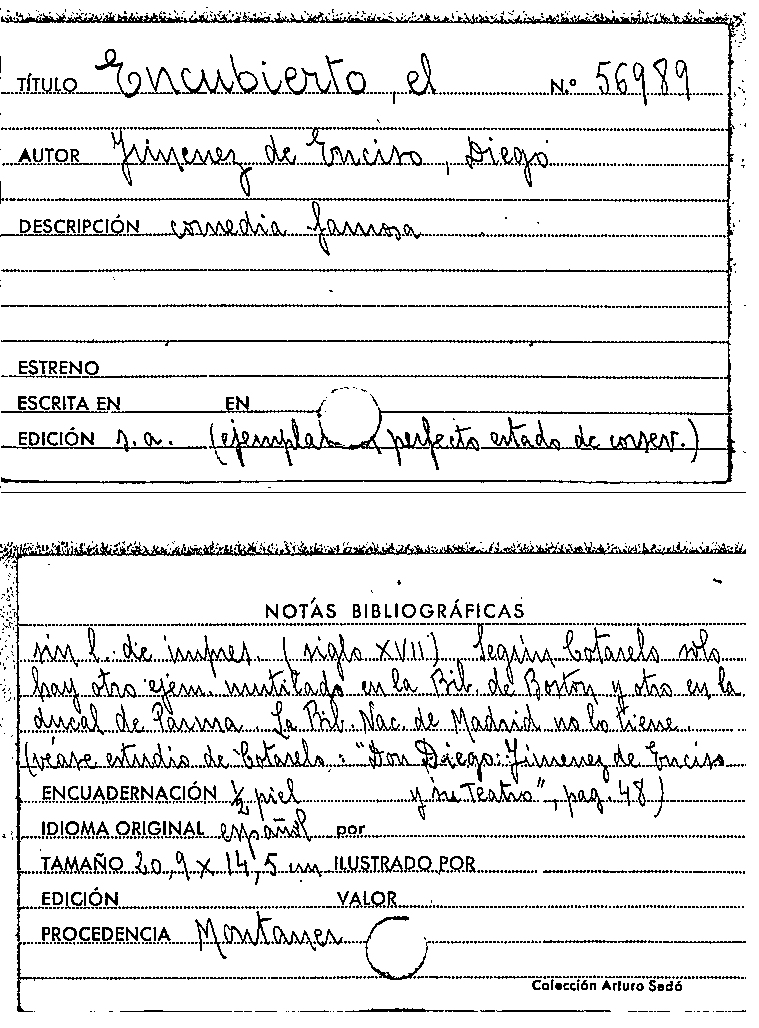 TÍTULO Encubierto, el N.º 56989
AUTOR Jimenez de Enciso, Diego
DESCRIPCIÓN comedia famosa
ESTRENO
ESCRITA EN EN
EDICIÓN s.a. (ejemplar perfecto estado de conser.)
NOTAS BIBLIOGRÁFICAS
sin l. de impres. (siglo XVII) Según Cotarelo solo
hay otro ejem. mutilado en la Bib. de Boston y otro en la
ducal de Parma. La Bib. Nac. de Madrid no lo tiene.
(véase estudio de Cotarelo: "Don Diego Jimenez de Enciso
ENCUADERNACIÓN ½ piel y su Teatro", pag. 48)
IDIOMA ORIGINAL español por
TAMAÑO 20,9 x 14,5 cm ILUSTRADO POR
EDICIÓN VALOR
PROCEDENCIA Montaner
Colección Arturo Sedó